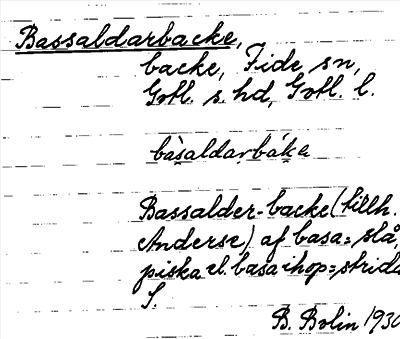 Bassaldarbacke,
backe, Fide sn,
Gotl. s. hd, Gotl. l.
bàsaldarbáka
Bassalder-backe (tillh.
Anderse) af basa = slå,
piska el. basa ihop = strida
S.
B. Bolin 1930